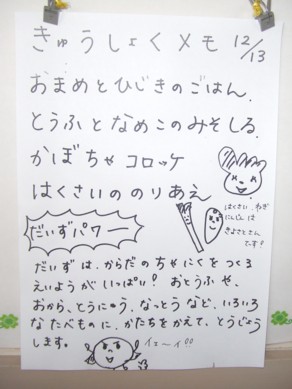 きゅうしょくメモ 12/13
おまめとひじきのごはん.
とうふとなめこのみそしる.
かぼちゃコロッケ
はくさいののりあえ
だいずパワー
はくさい、ねぎ
にんじんは
きよさとさん
です!
だいずは、からだのちゃにくをつくる
えいようがいっぱい! おとうふや、
おから、とうにゅう、なっとうなど、いろいろ
なたべものに、かたちをかえて、とうじょう
します。
イェーイ!!